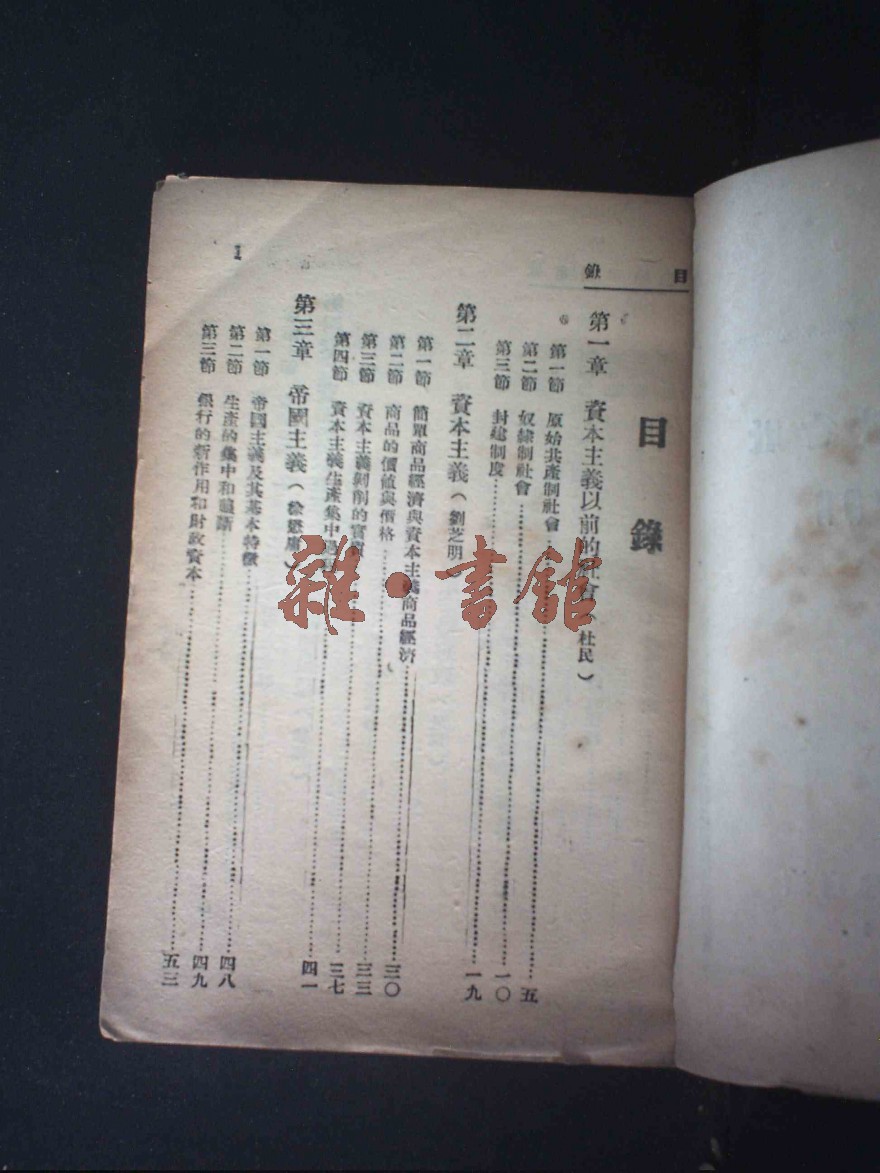 目錄
目 錄
第一章 資本主義以前的社會（杜民）
第一節 原始共產制社會
第二節 奴隸制社會……五
第三節 封建制度……一〇
第二章 資本主義（劉芝明）……一九
第一節 簡單商品經濟與資本主義商品經濟
第二節 商品的價值與價格……三〇
第三節 資本主義剝削的實質……三三
第四節 資本主義生產集中……三七
第三章 帝國主義（徐懋庸）……四一
第一節 帝國主義及其基本特徵
第二節 生產的集中和壟斷……四八
第三節 銀行的新作用和財政資本……四九
五三
1
雜·書館